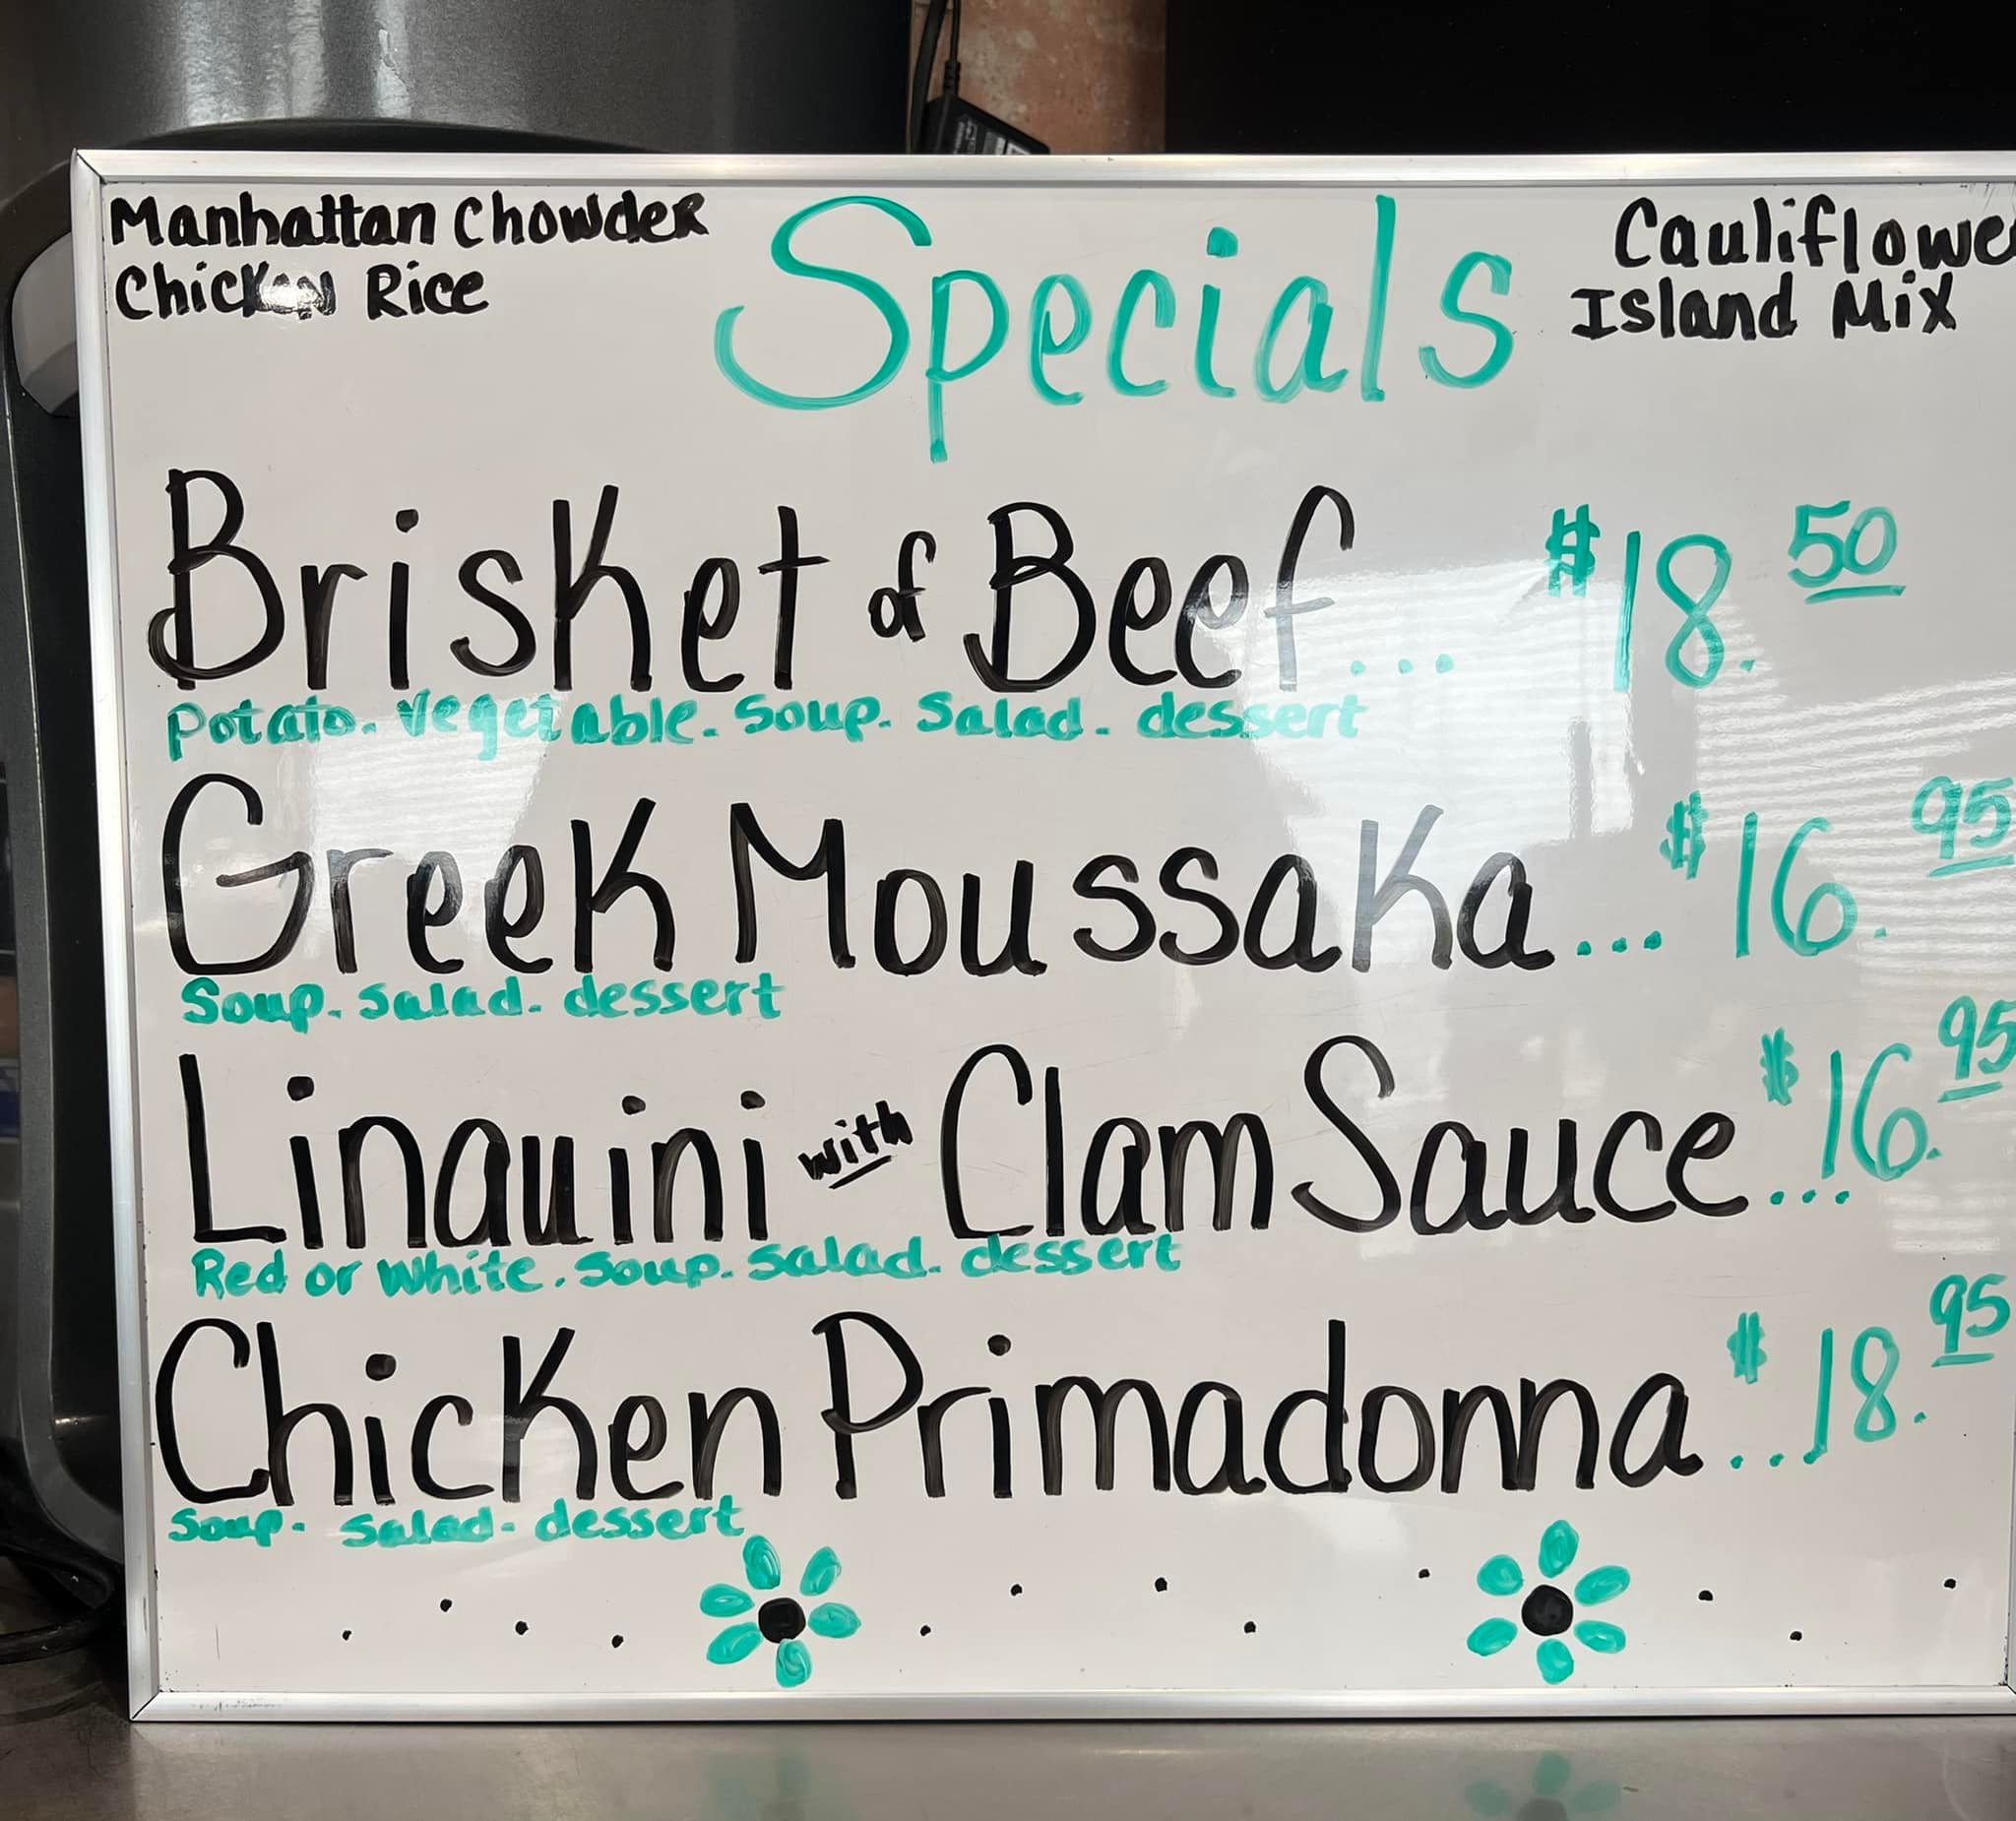 Manhattan Chowder
Chicken Rice
Specials
Cauliflowe
Island Mix
Brisket of Beef... $18.50
Potato. Vegetable. Soup. Salad. dessert
Greek Moussaka... $16.95
Soup. Salad. dessert
Linauini with Clam Sauce... $16.95
Red or White. Soup. Salad. dessert
Chicken Primadonna... $18.95
Soup. Salad. dessert